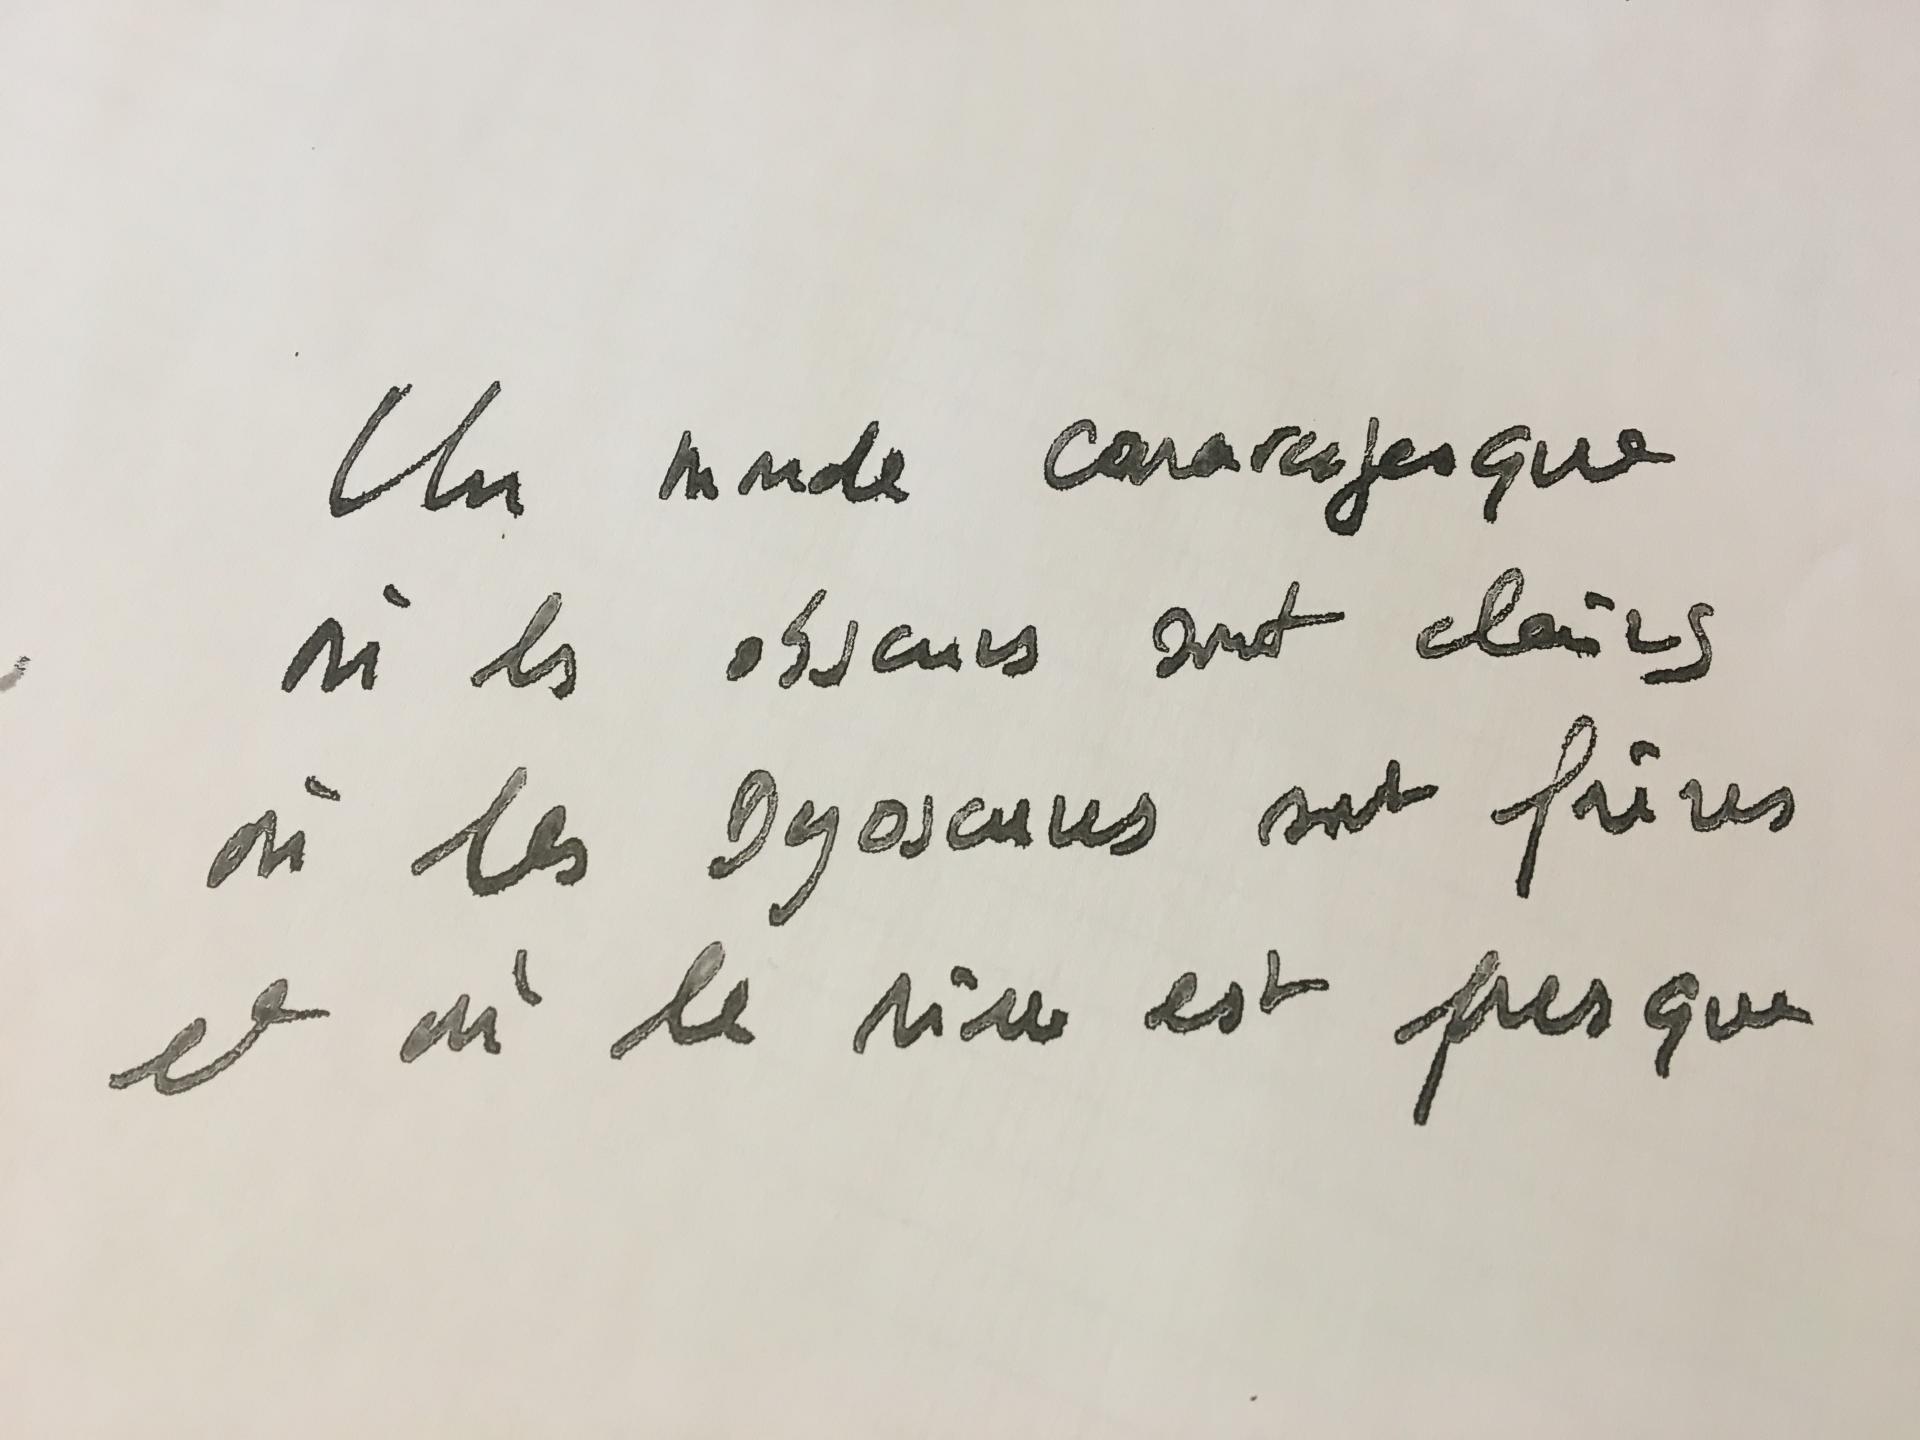 Un monde caravagesque
où les obscurs sont clairs
où les Dyoscures sont frères
et où le rire est presque